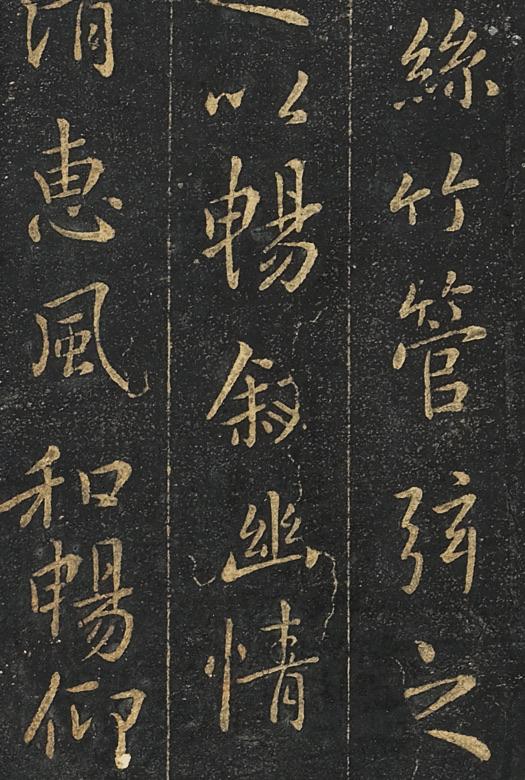 絲竹管弦之
以暢叙幽情
清惠風和暢仰